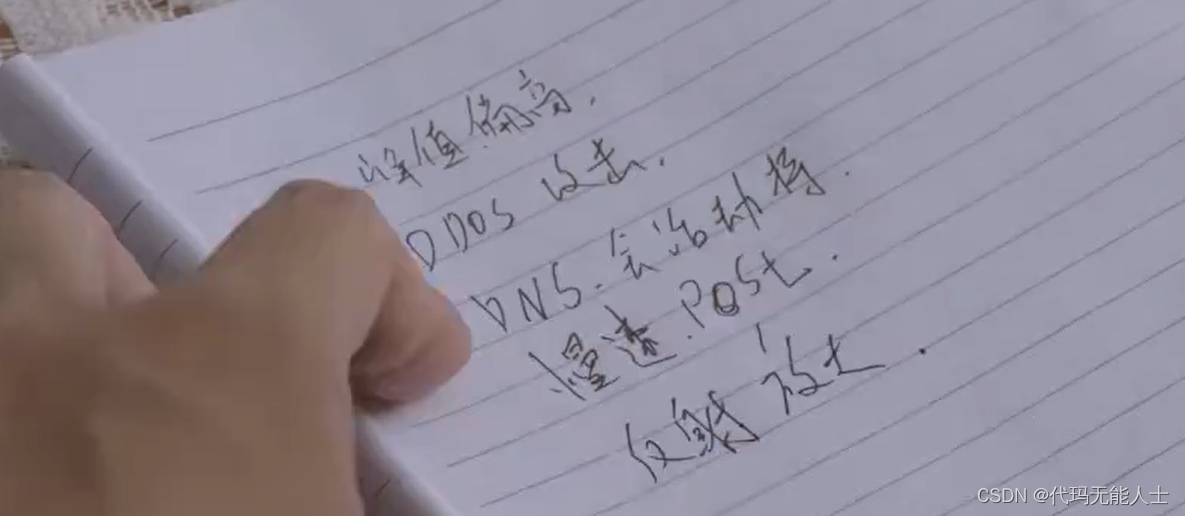 峰值偏高.
DDOS 攻击.
DNS. 会话劫持.
慢速.POSt.
反射 放大.
CSDN @代玛无能人士